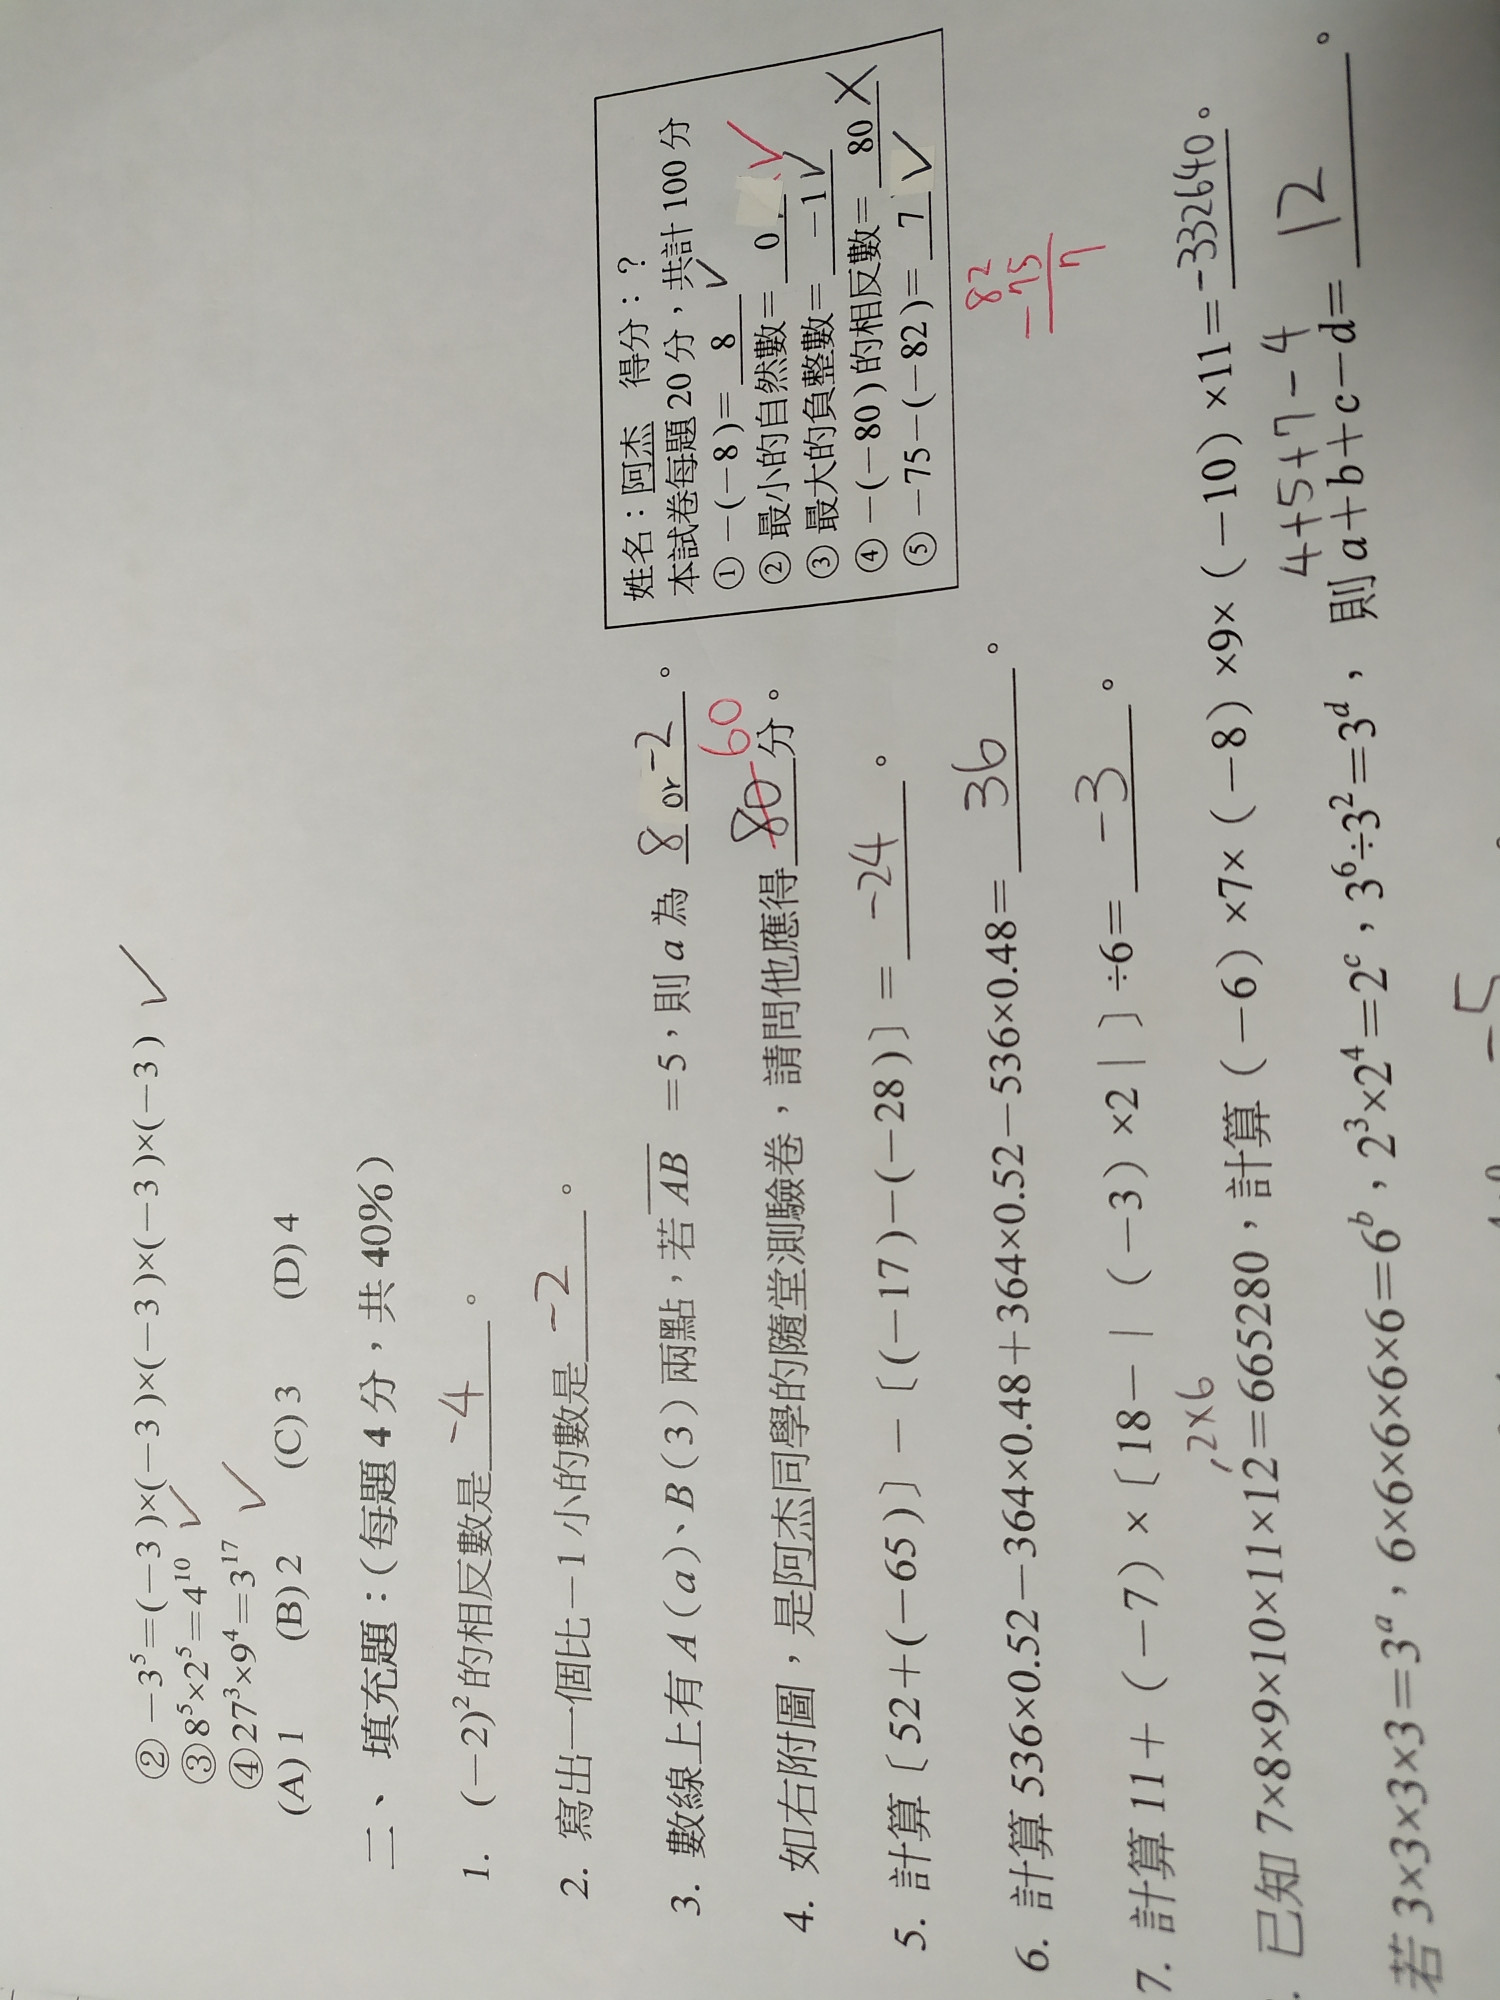 ② −3⁵=(−3)×(−3)×(−3)×(−3)×(−3) ✓
③ 8⁵×2⁵=4¹⁰ ✓
④ 27³×9⁴=3¹⁷ ✓
(A) 1 (B) 2 (C) 3 (D) 4
二、填充題：(每題 4 分，共 40%)
1. (−2)²的相反數是 -4 。
2. 寫出一個比−1 小的數是 -2 。
3. 數線上有 A(a)、B(3)兩點，若 AB =5，則 a 為 8 or -2 。
4. 如右附圖，是阿杰同學的隨堂測驗卷，請問他應得 80 60 分。
姓名：阿杰 得分：?
本試卷每題 20 分，共計 100 分
① −(−8)= 8 ✓
② 最小的自然數= 0 ✓
③ 最大的負整數= −1 ✓
④ −(−80)的相反數= 80 X
⑤ −75−(−82)= 7 ✓
82
-75
7
5. 計算〔52+(−65)〕−〔(−17)−(−28)〕= -24 。
6. 計算 536×0.52−364×0.48+364×0.52−536×0.48= 36 。
7. 計算 11+(−7)×〔18−|(−3)×2|〕÷6= -3 。
2×6
. 已知 7×8×9×10×11×12=665280，計算(−6)×7×(−8)×9×(−10)×11= -332640 。
4+5+7-4
若 3×3×3×3=3ᵃ，6×6×6×6×6=6ᵇ，2³×2⁴=2ᶜ，3⁶÷3²=3ᵈ，則 a+b+c−d= 12 。
-5